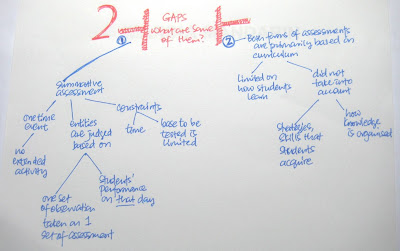 2
GAPS
what are some
of them?
①
summative
assessment
one time
event
no
extended
activity
entities
are judged
based on
one set
of observation
taken on 1
set of assessment
students'
performance
on that day
constraints
time
base to be
tested is
limited
② Both forms of assessments
are primarily based on
curriculum
limited on
how students
learn
did not
take into
account
strategies,
skills that
students
acquire
how
knowledge
is organised